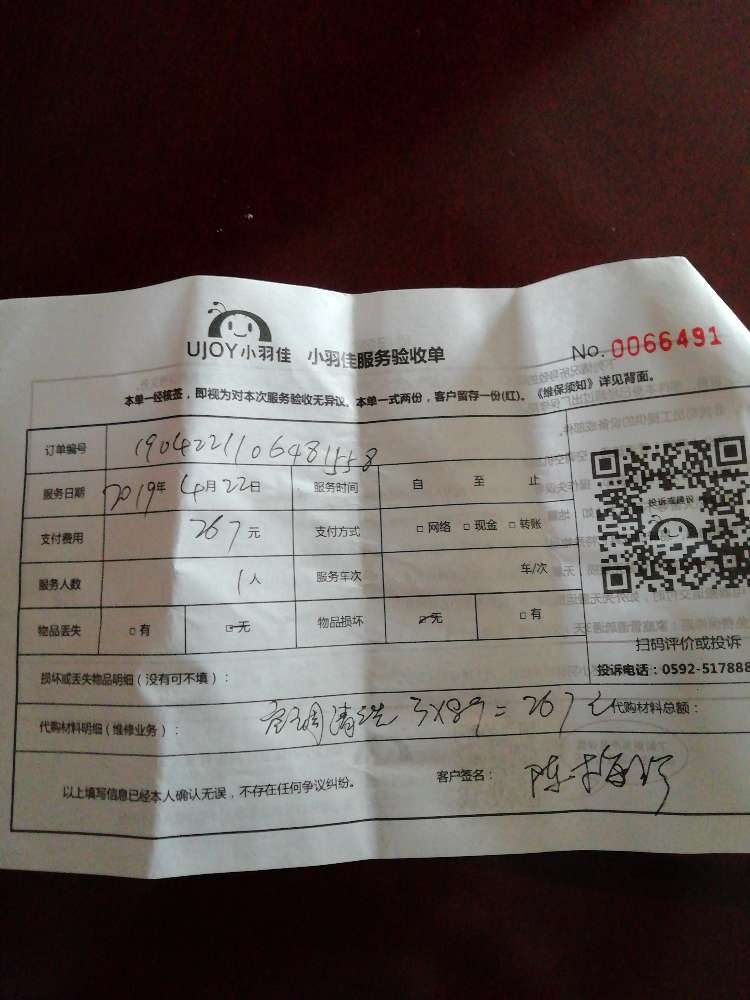 UJOY小羽佳 小羽佳服务验收单
No. 0066491
本单一经核签，即视为对本次服务验收无异议。本单一式两份，客户留存一份(红)。《维保须知》详见背面。
订单编号 1904221106481558
服务日期 2019年 4月 22日 服务时间 自 至 止
支付费用 267元 支付方式 □ 网络 □ 现金 □ 转账
服务人数 1人 服务车次 车/次
物品丢失 □ 有 □ 无 物品损坏 □ 无 □ 有
投诉或建议
扫码评价或投诉
投诉电话：0592-517888
损坏或丢失物品明细（没有可不填）：
代购材料明细（维修业务）： 空调清洗 3×89=267元 代购材料总额：
以上填写信息已经本人确认无误，不存在任何争议纠纷。 客户签名： 陈